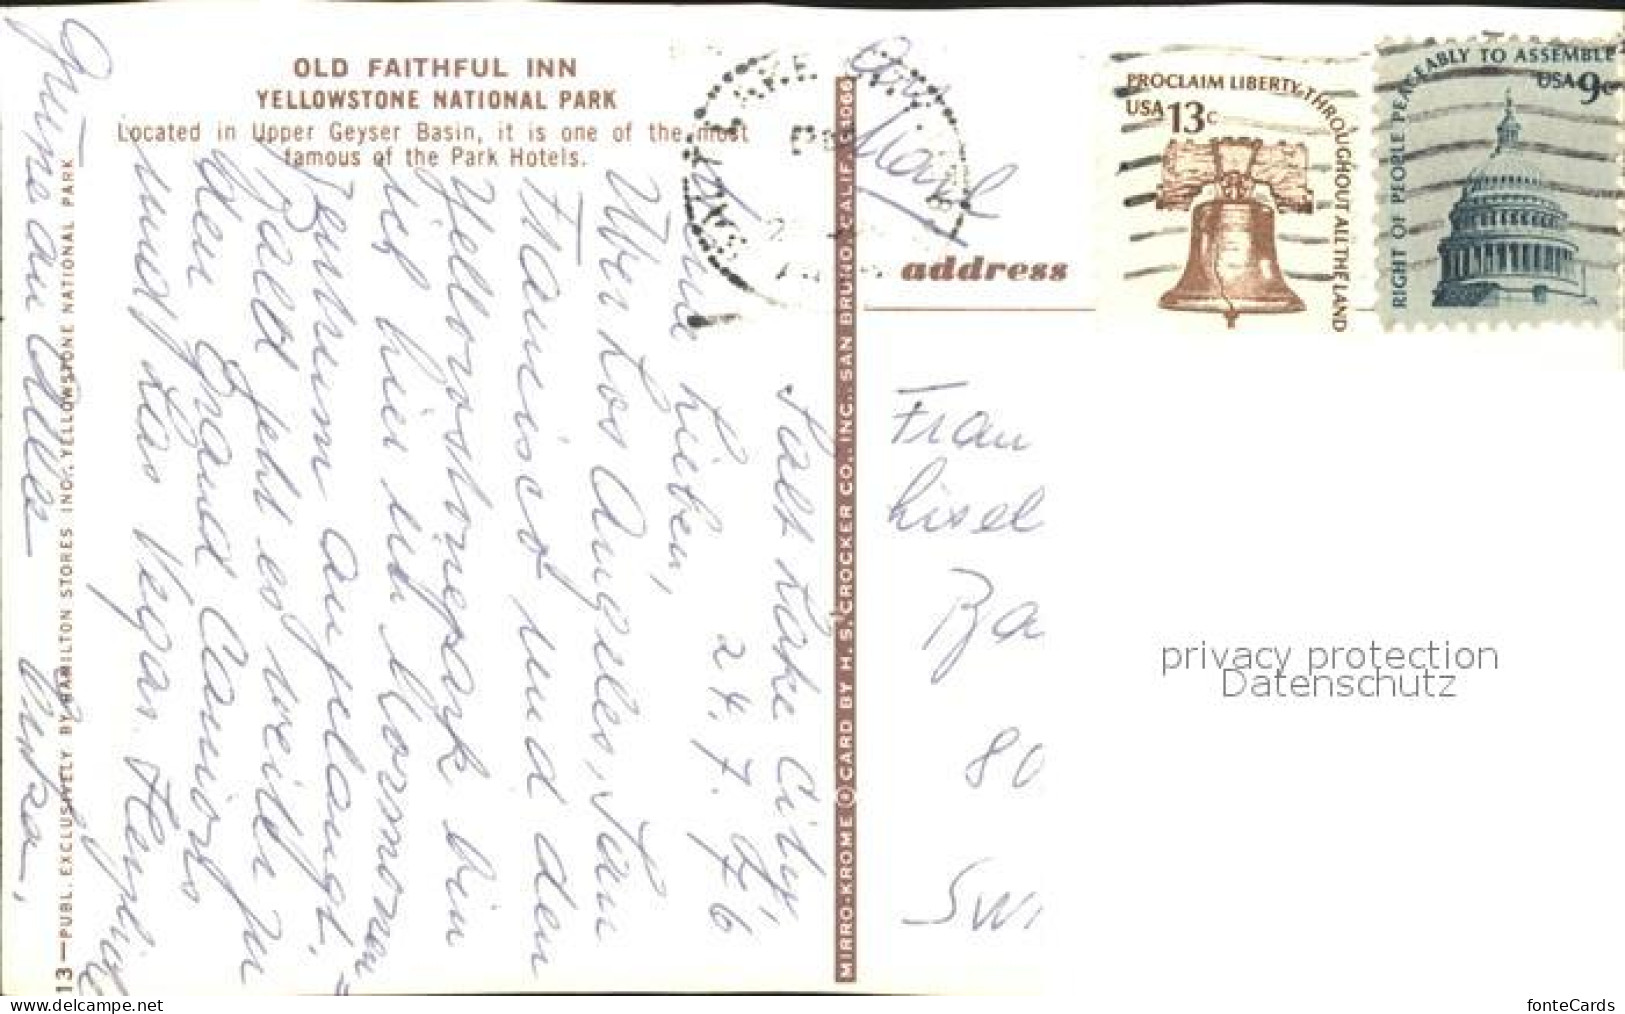 OLD FAITHFUL INN
YELLOWSTONE NATIONAL PARK
Located in Upper Geyser Basin, it is one of the most
famous of the Park Hotels.
Salt Lake City,
24. 7. 76
Meine Lieben,
Über Los Angeles, San
Francisco und den
Yellowstonepark bin
ich hier im Mormonen-
zentrum angelangt.
Bald geht es weiter zu
den Grand Canions
und Las Vegas. Herzliche
Grüsse an alle
13—PUBL. EXCLUSIVELY BY HAMILTON STORES INC., YELLOWSTONE NATIONAL PARK
MIRRO-KROME ® CARD BY H. S. CROCKER CO., INC., SAN BRUNO, CALIF. 94066
SALT LAKE
address
PROCLAIM LIBERTY THROUGHOUT ALL THE LAND
USA 13c
RIGHT OF PEOPLE PEACEABLY TO ASSEMBLE
USA 9c
Frau
Lisel
Ba
80
Swi
privacy protection
Datenschutz
www.delcampe.net
fonteCards